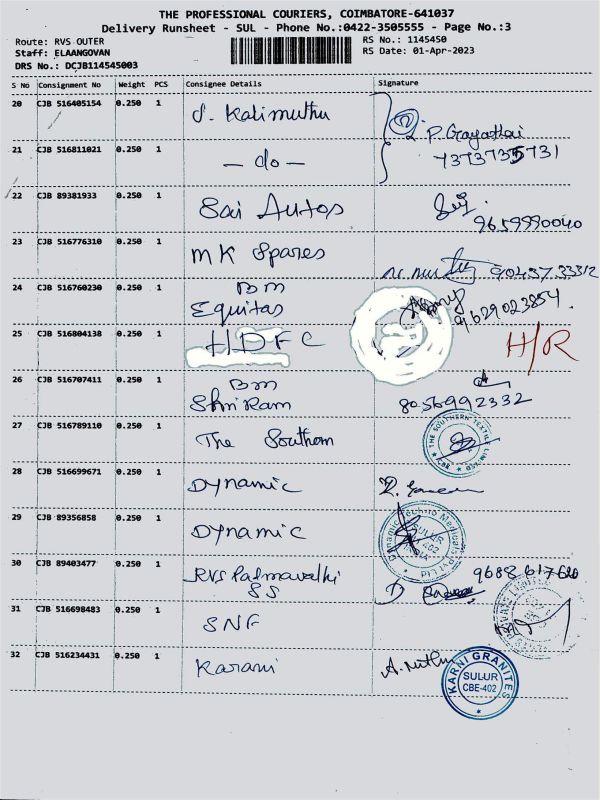 THE PROFESSIONAL COURIERS, COIMBATORE-641037
Delivery Runsheet - SUL - Phone No.:0422-3505555 - Page No.:3
Route: RVS OUTER
RS No.: 1145450
Staff: ELAANGOVAN
RS Date: 01-Apr-2023
DRS No.: DCJB114545003
S No Consignment No Weight PCS Consignee Details Signature
20 CJB 516405154 0.250 1 S. Kalimuthu P. Gayathri
21 CJB 516811021 0.250 1 - do - 7373735731
22 CJB 89381933 0.250 1 Sai Autos 9659990040
23 CJB 516776310 0.250 1 MK Spares 9043733312
24 CJB 516760230 0.250 1 BM
Equitas 9629023854
25 CJB 516804138 0.250 1 HDFC H/R
26 CJB 516707411 0.250 1 BM
Shri Ram 8056992332
27 CJB 516789110 0.250 1 The Southern THE SOUTHERN TEXTILE LIMITED CBE
28 CJB 516699671 0.250 1 Dynamic
29 CJB 89356858 0.250 1 Dynamic Dynamic Techno Medicals Pvt Ltd SULUR 402
30 CJB 89403477 0.250 1 RVS Padmavathi
SS 9688617620
31 CJB 516698483 0.250 1 SNF PRIVATE LIMITED
32 CJB 516234431 0.250 1 Karani A. Muthu KARNI GRANITES SULUR CBE-402